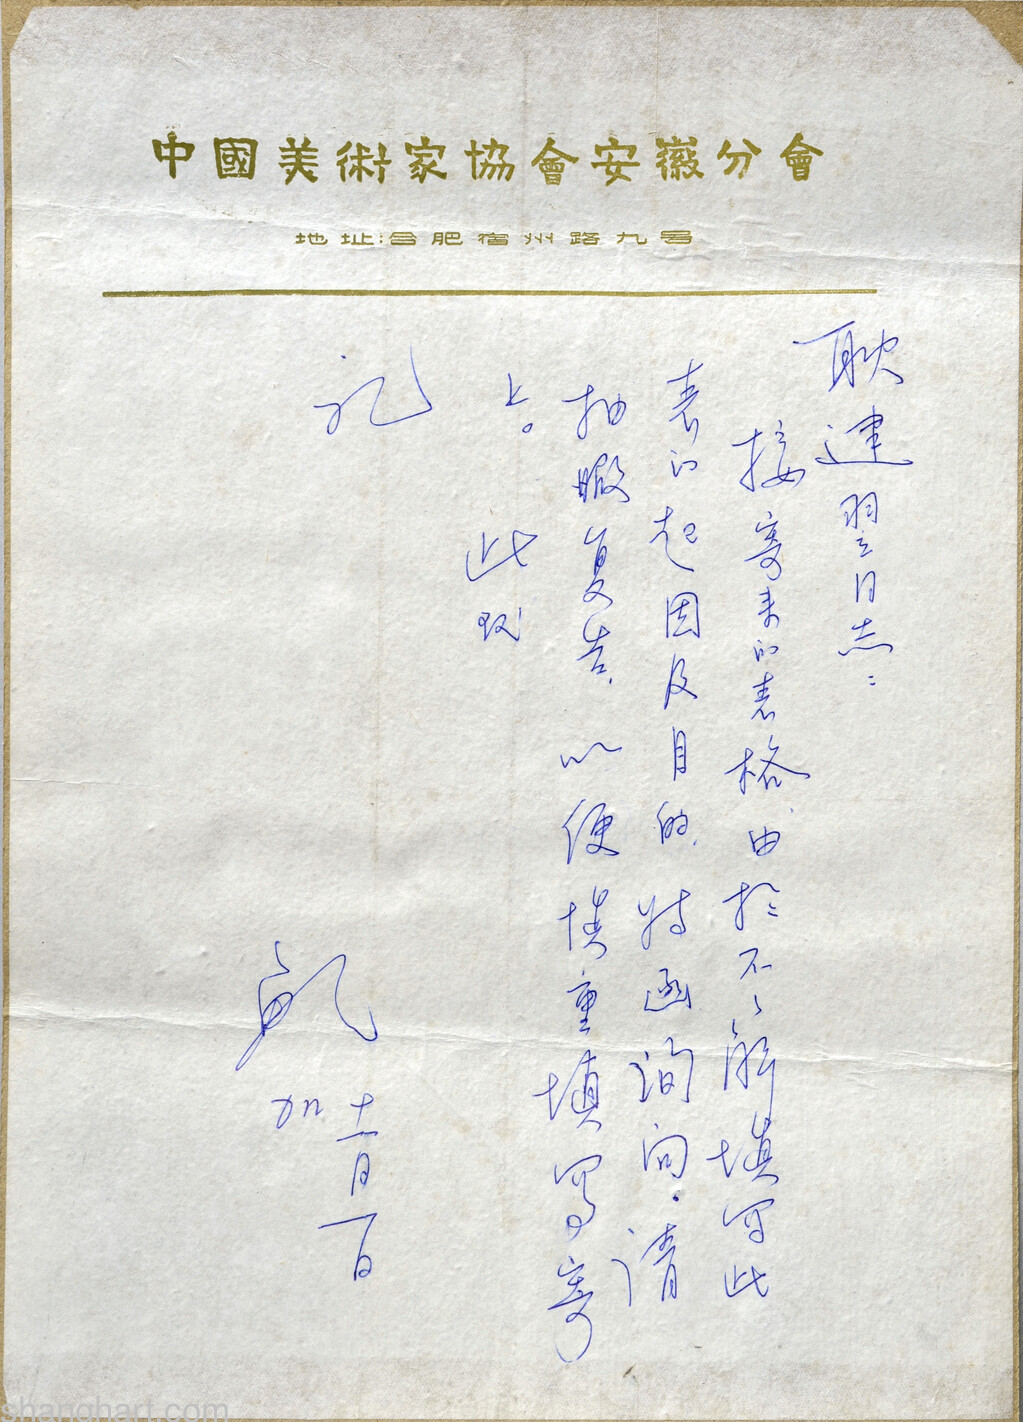 中國美術家協會安徽分會
地址:合肥宿州路九号
耿建翌同志:
接寄来的表格,由於不了解填写此
表的起因及目的,特函询问。请
抽暇复告,以便慎重填写寄
上。
此致
礼
十一月一日
shanghart.com